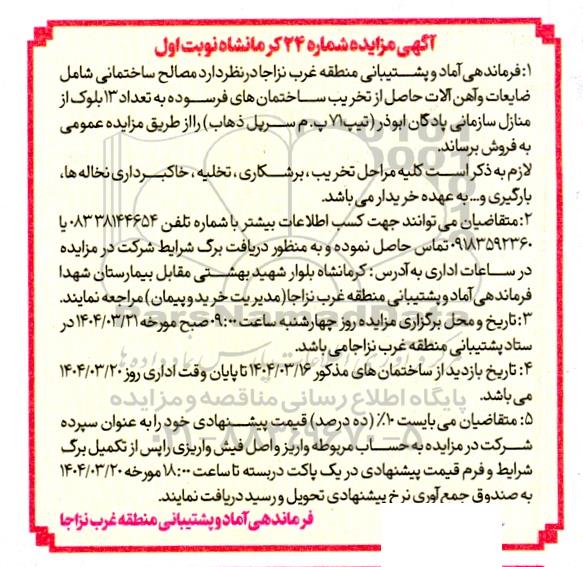 آگهی مزایده شماره ۲۴ کرمانشاه نوبت اول
۱: فرماندهی آماد و پشتیبانی منطقه غرب نزاجا در نظر دارد مصالح ساختمانی شامل
ضایعات و آهن آلات حاصل از تخریب ساختمان های فرسوده به تعداد ۱۳ بلوک از
منازل سازمانی پادگان ابوذر (تیپ ۷۱ پ. م سرپل ذهاب) را از طریق مزایده عمومی
به فروش برساند.
لازم به ذکر است کلیه مراحل تخریب، برشکاری، تخلیه، خاکبرداری نخاله ها،
بارگیری و... به عهده خریدار می باشد.
۲: متقاضیان می توانند جهت کسب اطلاعات بیشتر با شماره تلفن ۰۸۳۳۸۱۴۴۶۵۴ یا
۰۹۱۸۳۵۹۲۳۶۰ تماس حاصل نموده و به منظور دریافت برگ شرایط شرکت در مزایده
در ساعات اداری به آدرس: کرمانشاه بلوار شهید بهشتی مقابل بیمارستان شهدا
فرماندهی آماد و پشتیبانی منطقه غرب نزاجا (مدیریت خرید و پیمان) مراجعه نمایند.
۳: تاریخ و محل برگزاری مزایده روز چهارشنبه ساعت ۰۹:۰۰ صبح مورخه ۱۴۰۴/۰۳/۲۱ در
ستاد پشتیبانی منطقه غرب نزاجا می باشد.
۴: تاریخ بازدید از ساختمان های مذکور ۱۴۰۴/۰۳/۱۶ تا پایان وقت اداری روز ۱۴۰۴/۰۳/۲۰
می باشد.
۵: متقاضیان می بایست ۱۰٪ (ده درصد) قیمت پیشنهادی خود را به عنوان سپرده
شرکت در مزایده به حساب مربوطه واریز و اصل فیش واریزی را پس از تکمیل برگ
شرایط و فرم قیمت پیشنهادی در یک پاکت دربسته تا ساعت ۱۸:۰۰ مورخه ۱۴۰۴/۰۳/۲۰
به صندوق جمع آوری نرخ پیشنهادی تحویل و رسید دریافت نمایند.
فرماندهی آماد و پشتیبانی منطقه غرب نزاجا
ParsNamadData
پایگاه اطلاع رسانی مناقصه و مزایده
۰۲۱-۸۸۳۴۹۶۷۰-۵